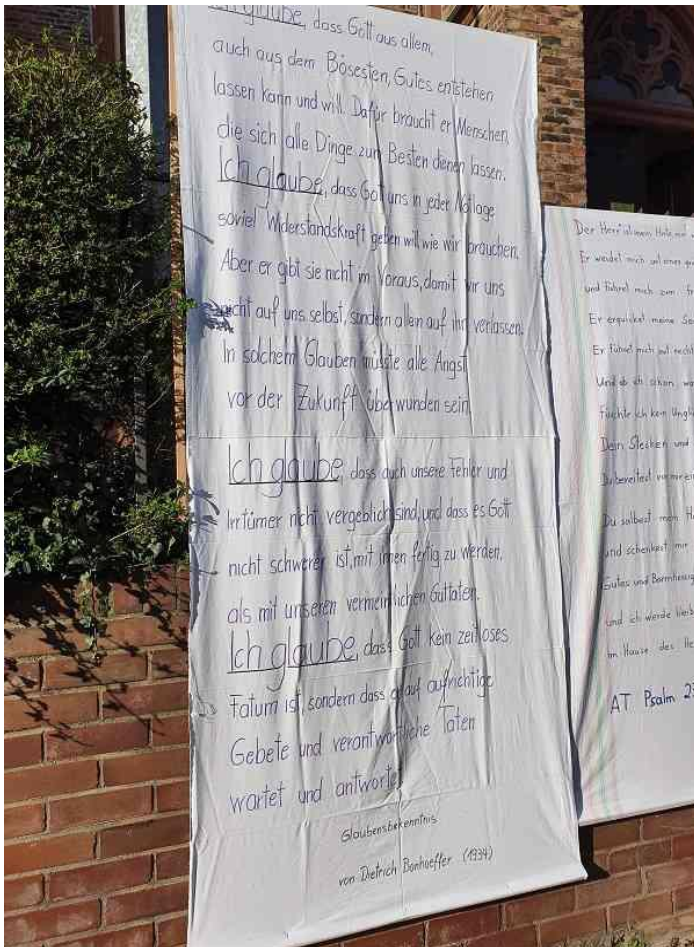 Ich glaube, dass Gott aus allem,
auch aus dem Bösesten, Gutes entstehen
lassen kann und will. Dafür braucht er Menschen,
die sich alle Dinge zum Besten dienen lassen.
Ich glaube, dass Gott uns in jeder Notlage
soviel Widerstandskraft geben will wie wir brauchen.
Aber er gibt sie nicht im Voraus, damit wir uns
nicht auf uns selbst, sondern allein auf ihn verlassen.
In solchem Glauben müsste alle Angst
vor der Zukunft überwunden sein.
Ich glaube, dass auch unsere Fehler und
Irrtümer nicht vergeblich sind, und dass es Gott
nicht schwerer ist, mit ihnen fertig zu werden,
als mit unseren vermeintlichen Guttaten.
Ich glaube, dass Gott kein zeitloses
Fatum ist, sondern dass er auf aufrichtige
Gebete und verantwortliche Taten
wartet und antwortet
Glaubensbekenntnis
von Dietrich Bonhoeffer (1934)
Der Herr ist mein Hirte, mir
Er weidet mich auf einer
und führet mich zum
Er erquicket meine
Er führet mich auf
Und ob ich schon
fürchte ich kein
Dein Stecken und
Du bereitest vor mir
Du salbest mein
und schenkest mir
Gutes und
und ich werde
im Hause des
AT Psalm 23